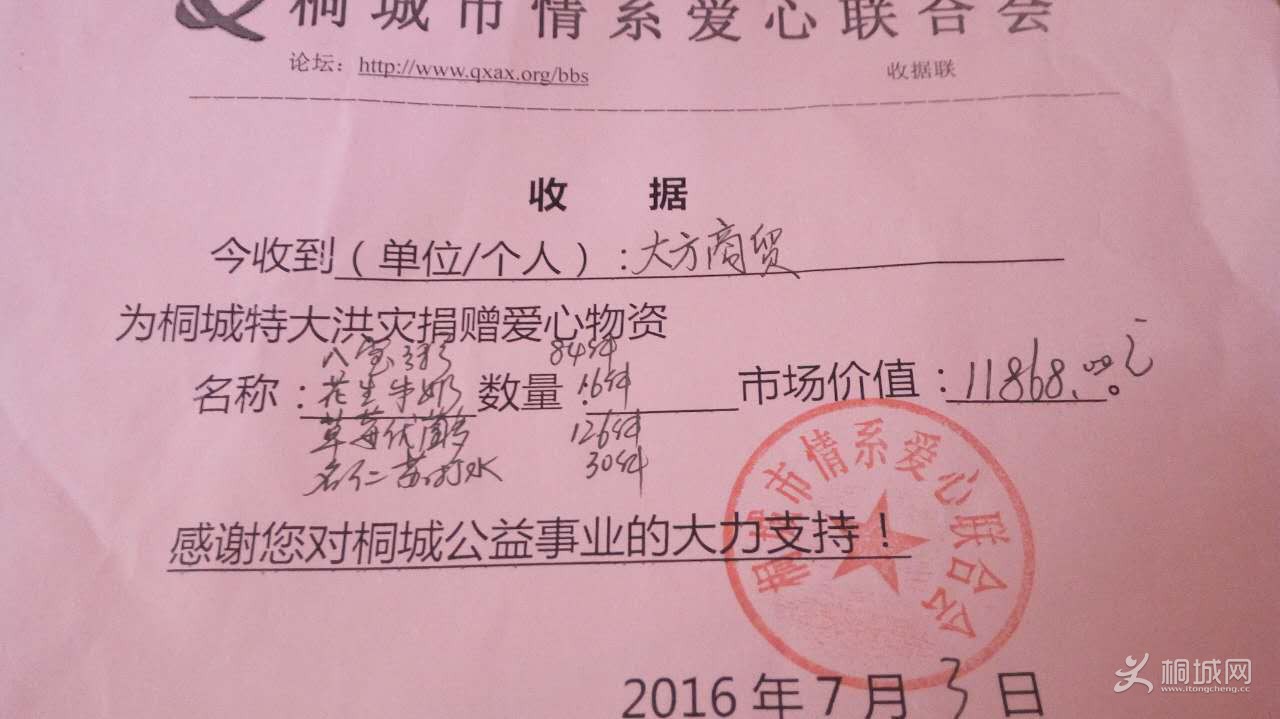 桐城市情系爱心联合会
论坛：http://www.qxax.org/bbs 收据联
收 据
今收到（单位/个人）：大方商贸
为桐城特大洪灾捐赠爱心物资
八宝粥 84件
名称：花生牛奶 数量：16件 市场价值：11868.00元。
草莓优菌多 126件
名仁苏打水 30件
感谢您对桐城公益事业的大力支持！
桐城市情系爱心联合会
2016年7月3日
桐城网
www.itongcheng.cc